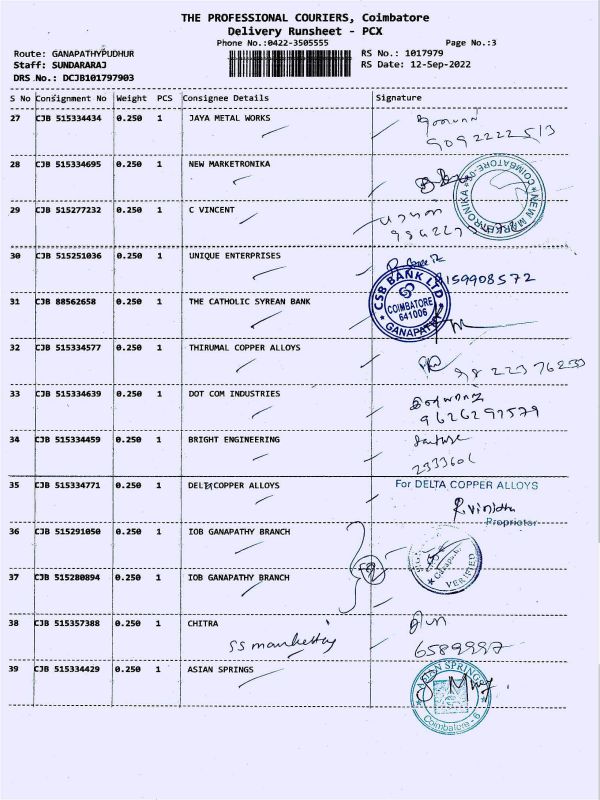 THE PROFESSIONAL COURIERS, Coimbatore
Delivery Runsheet - PCX
Phone No.:0422-3505555 Page No.:3
Route: GANAPATHYPUDHUR RS No.: 1017979
Staff: SUNDARARAJ RS Date: 12-Sep-2022
DRS No.: DCJB101797903
S No Consignment No Weight PCS Consignee Details Signature
27 CJB 515334434 0.250 1 JAYA METAL WORKS
9092222513
28 CJB 515334695 0.250 1 NEW MARKETRONIKA
NEW MARKETRONIKA COIMBATORE-06
29 CJB 515277232 0.250 1 C VINCENT
30 CJB 515251036 0.250 1 UNIQUE ENTERPRISES
8159908572
31 CJB 88562658 0.250 1 THE CATHOLIC SYREAN BANK
CSB BANK LTD
COIMBATORE
641006
GANAPATHY
32 CJB 515334577 0.250 1 THIRUMAL COPPER ALLOYS
98 22376233
33 CJB 515334639 0.250 1 DOT COM INDUSTRIES
9626297579
34 CJB 515334459 0.250 1 BRIGHT ENGINEERING
2333606
35 CJB 515334771 0.250 1 DELTA COPPER ALLOYS For DELTA COPPER ALLOYS
Proprietor
36 CJB 515291050 0.250 1 IOB GANAPATHY BRANCH
Ganapathy
VERIFIED
37 CJB 515280894 0.250 1 IOB GANAPATHY BRANCH
38 CJB 515357388 0.250 1 CHITRA
SS marketing 6589997
39 CJB 515334429 0.250 1 ASIAN SPRINGS
ASIAN SPRINGS
Coimbatore - 6